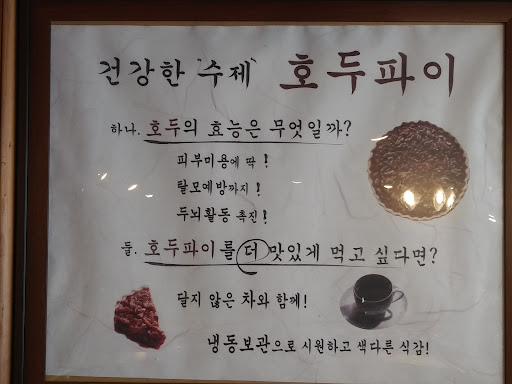 건강한 "수제" 호두파이
하나. 호두의 효능은 무엇일까?
피부미용에 딱!
탈모예방까지!
두뇌활동 촉진!
둘. 호두파이를 더 맛있게 먹고 싶다면?
달지 않은 차와 함께!
냉동보관으로 시원하고 색다른 식감!